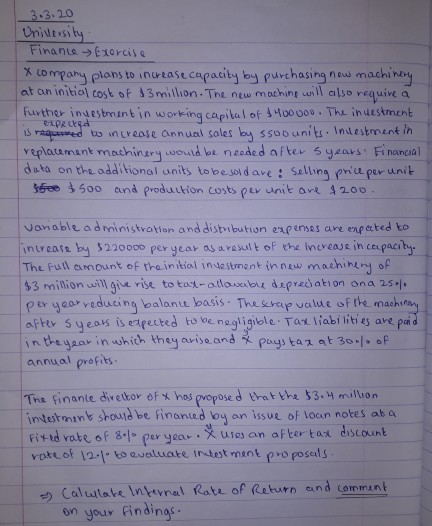 3.3.20
University
Finance → Exercise
X company plans to increase capacity by purchasing new machinery
at an initial cost of $3million. The new machine will also require a
further investment in working capital of $400000. The investment
is expected to increase annual sales by 5500 units. Investment in
replacement machinery would be needed after 5 years. Financial
data on the additional units to be sold are : Selling price per unit
$500 and production costs per unit are $200.
Variable administration and distribution expenses are expected to
increase by $220000 per year as a result of the increase in capacity.
The full amount of the initial investment in new machinery of
$3 million will give rise to tax-allowable depreciation on a 25%
per year reducing balance basis. The scrap value of the machinery
after 5 years is expected to be negligible. Tax liabilities are paid
in the year in which they arise and X pays tax at 30% of
annual profits.
The finance director of X has proposed that the $3.4 million
investment should be financed by an issue of loan notes at a
fixed rate of 8% per year. X uses an after tax discount
rate of 12% to evaluate investment proposals.
⇒ Calculate Internal Rate of Return and comment
on your findings.